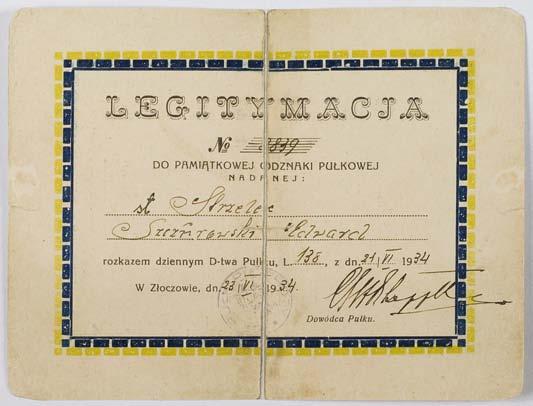 LEGITYMACJA
№ 3839
DO PAMIĄTKOWEJ ODZNAKI PUŁKOWEJ
NADANEJ:
st Strzelec
Edward
rozkazem dziennym D-twa Pułku, L. 138, z dn. 21 VI 1934
W Złoczowie, dn. 23 VI 1934.
Dowódca Pułku.